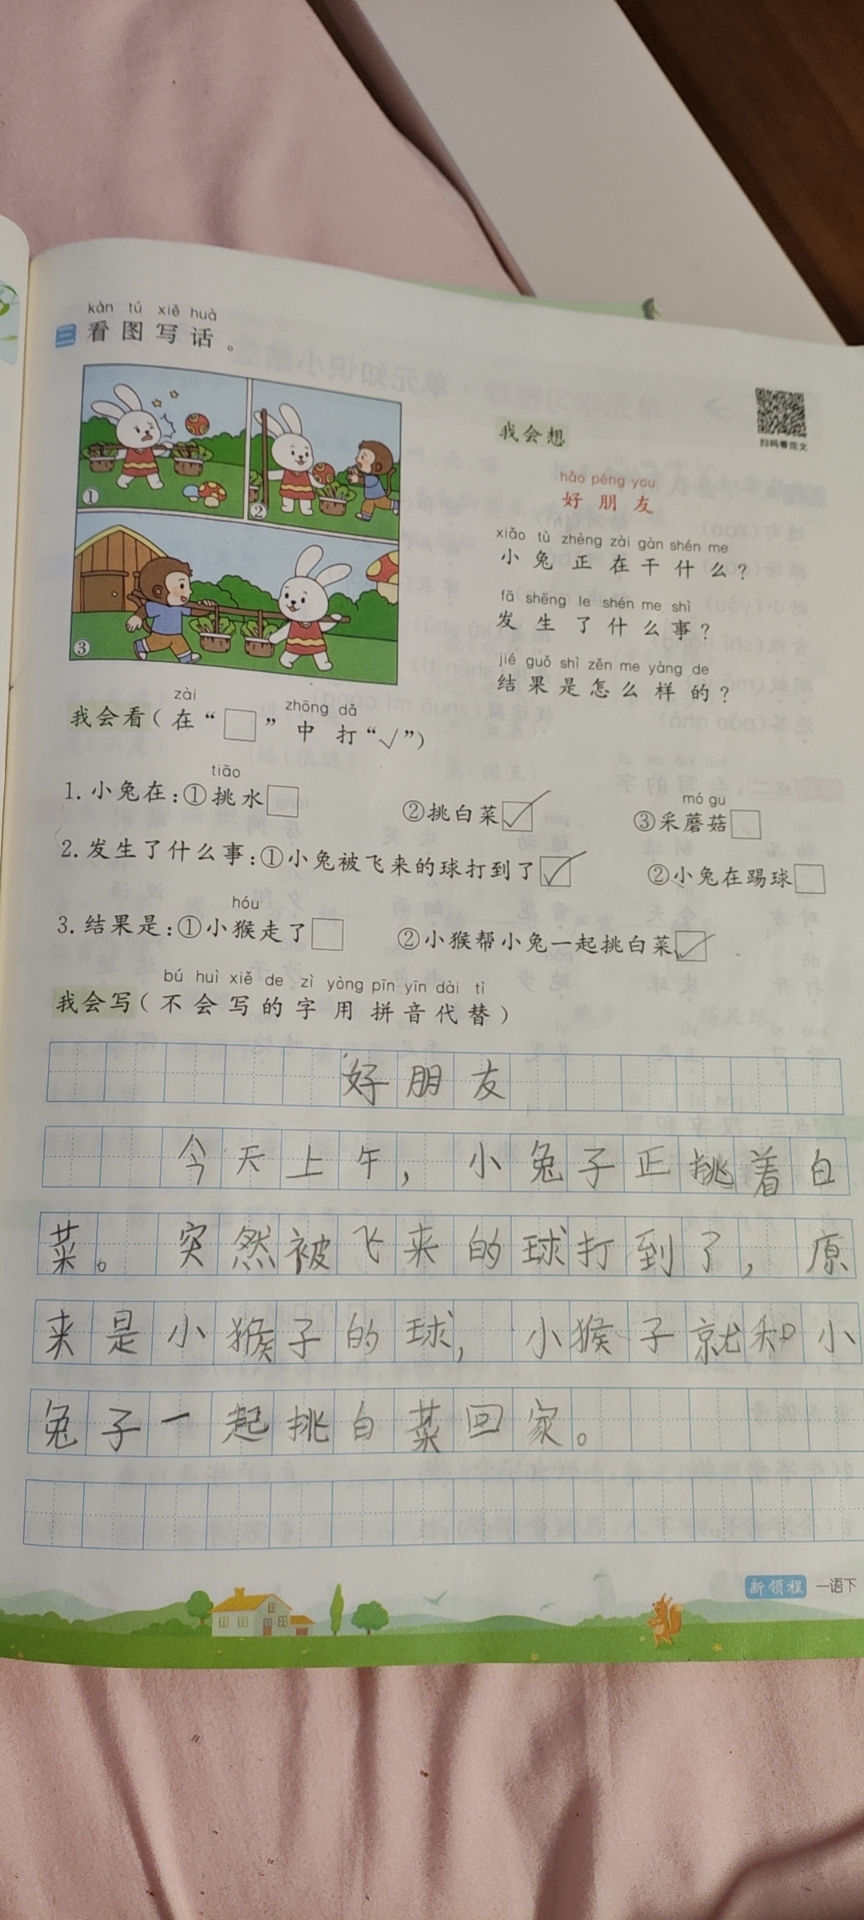 kàn tú xiě huà
三 看图写话。
①
②
③
扫码看范文
我会想
hǎo péng you
好朋友
xiǎo tù zhèng zài gàn shén me
小兔正在干什么？
fā shēng le shén me shì
发生了什么事？
jié guǒ shì zěn me yàng de
结果是怎么样的？
zài zhōng dǎ
我会看(在“□”中打“√”)
tiāo mó gu
1.小兔在：①挑水□ ②挑白菜☑ ③采蘑菇□
2.发生了什么事：①小兔被飞来的球打到了☑ ②小兔在踢球□
hóu
3.结果是：①小猴走了□ ②小猴帮小兔一起挑白菜☑
bú huì xiě de zì yòng pīn yīn dài tì
我会写(不会写的字用拼音代替)
好朋友
今天上午，小兔子正挑着白
菜。突然被飞来的球打到了，原
来是小猴子的球，小猴子就和小
兔子一起挑白菜回家。
新领程 一语下